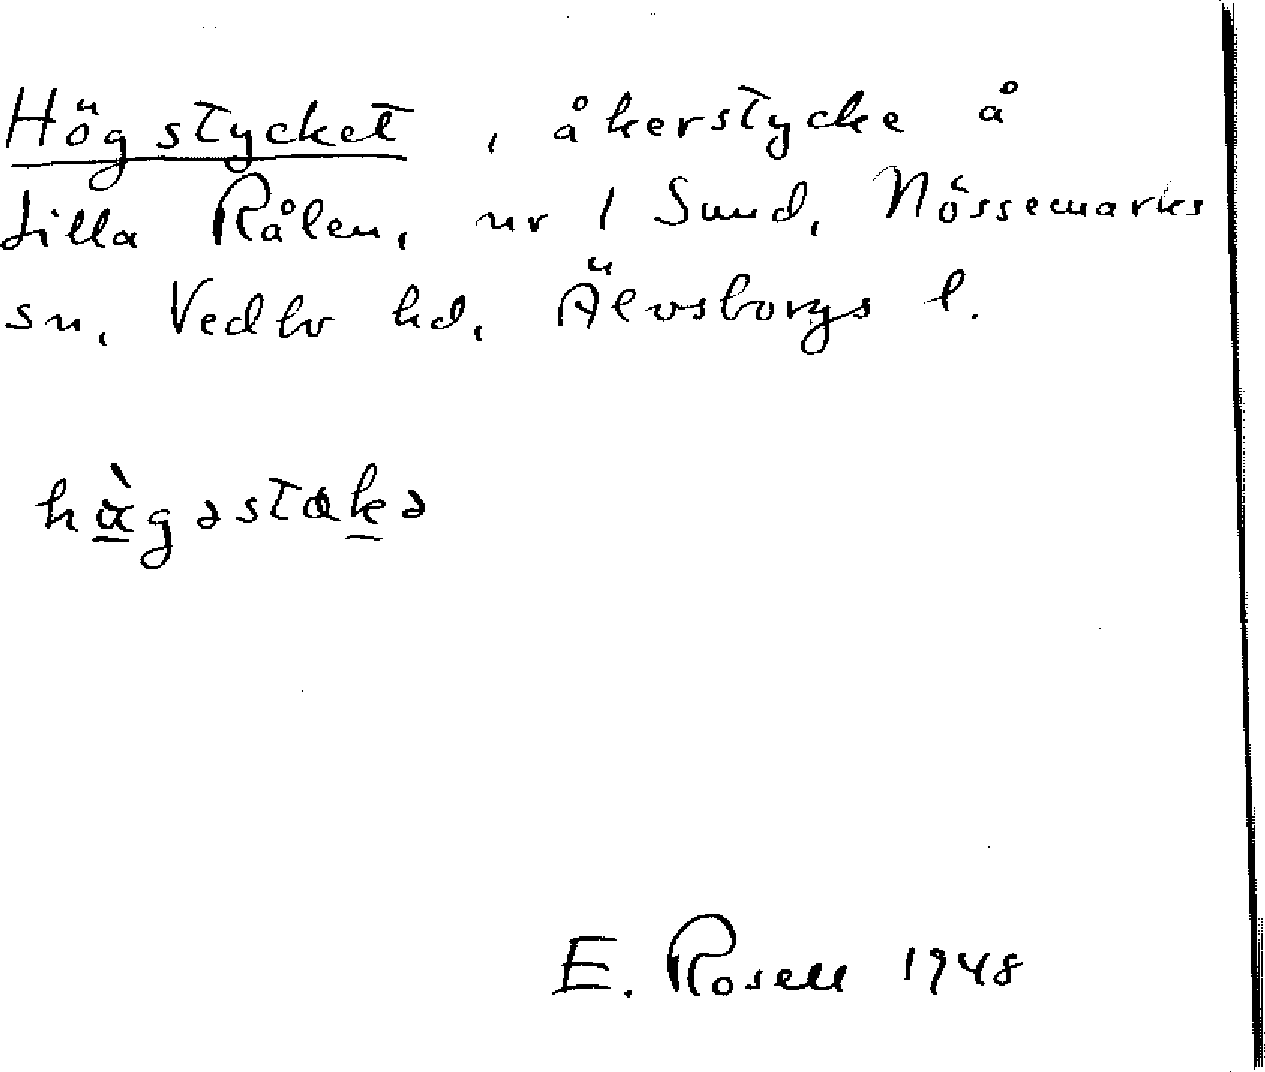 Högstycket, åkerstycke å
Lilla Rålen, nr 1 Sund, Nössemarks
sn, Vedbo hd, Älvsborgs l.
hàgəstakə
E. Rosell 1948